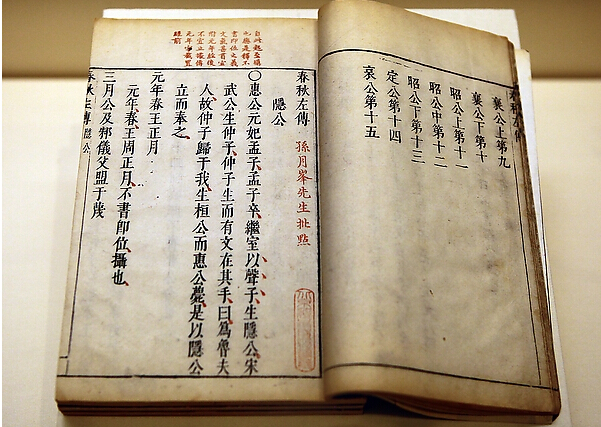 春秋左傳
襄公上第九
襄公下第十
昭公上第十一
昭公中第十二
昭公下第十三
定公第十四
哀公第十五
自此起至
之應是釋不
書即位之義
附元年經後
經前
春秋左傳 孫月峯先生批點
隱公
〇惠公元妃孟子孟子卒繼室以聲子生隱公宋
武公生仲子仲子生而有文在其手曰爲魯夫
人故仲子歸于我生桓公而惠公薨是以隱公
立而奉之
元年春王正月
元年春王周正月不書即位攝也
三月公及邾儀父盟于蔑
春秋左傳 隱公